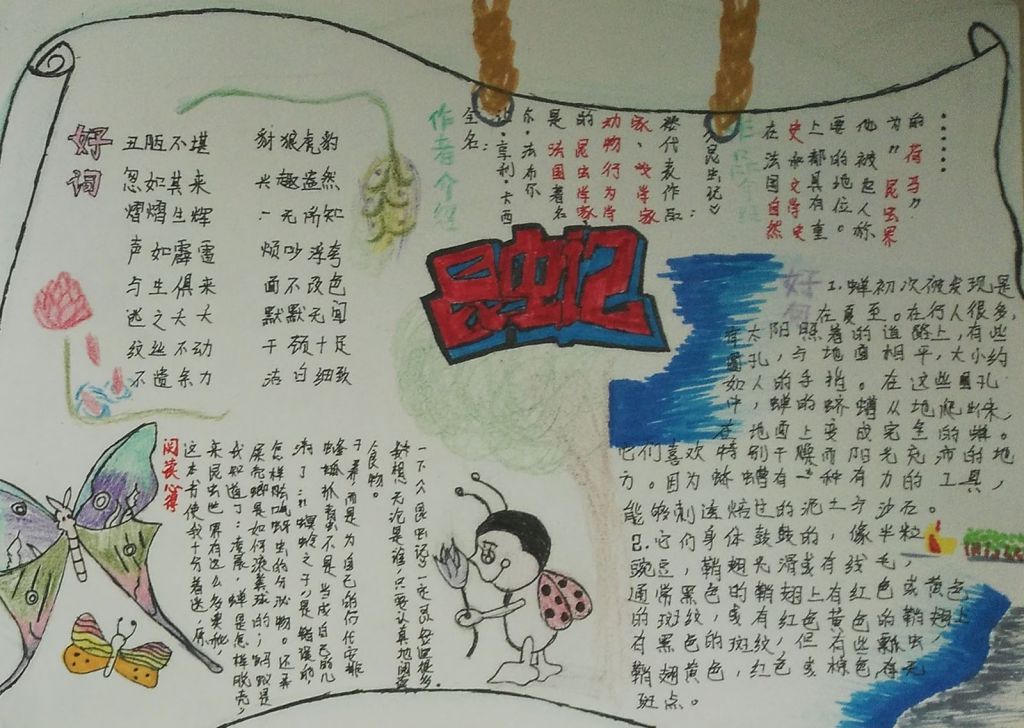 好词
丑陋不堪 豺狼虎豹
忽如其来 兴趣盎然
熠熠生辉 一无所知
声如霹雳 烦吵浮夸
与生俱来 面不改色
逃之夭夭 默默无闻
纹丝不动 干颈十足
不遗余力 洁白细致
作者介绍
全名：
让·亨利·卡西
尔·法布尔
是法国著名
的昆虫学家
动物行为学
家、文学家
被代表作品：
《昆虫记》
在法国自然
史和文学史
上都具有重
要的地位。
他被后人称
为“昆虫界
的荷马”
昆虫记
好句
1.蝉初次被发现是
在夏至。在行人很多，
有太阳照着的道路上，有些
圆孔，与地面相平，大小约
如人的手指。在这些圆孔
中，蝉的蛴螬从地爬出来，
在地面上变成完全的蝉。
它们喜欢特别干燥而阳光充沛的地
方。因为蛴螬有一种有力的工具，
能够刺透焙过的泥土与沙石。
2.它们身体鼓鼓的，像半粒
豌豆，鞘翅光滑或有绒毛，
通常黑色的鞘翅上有红色或黄色
的斑纹，或有红色黄色的鞘翅上
有黑色的斑纹，但有些瓢虫，
鞘翅黄色，红色或棕色有无
斑点。
阅读心得
这本书使我十分着迷，原
来昆虫世界有这么多奥秘
我知道了：凌晨，蝉是怎样脱壳，
屎壳螂是如何滚粪球的；蚂蚁是
怎样吃蚜虫的分泌物。还弄
清了：
食物。